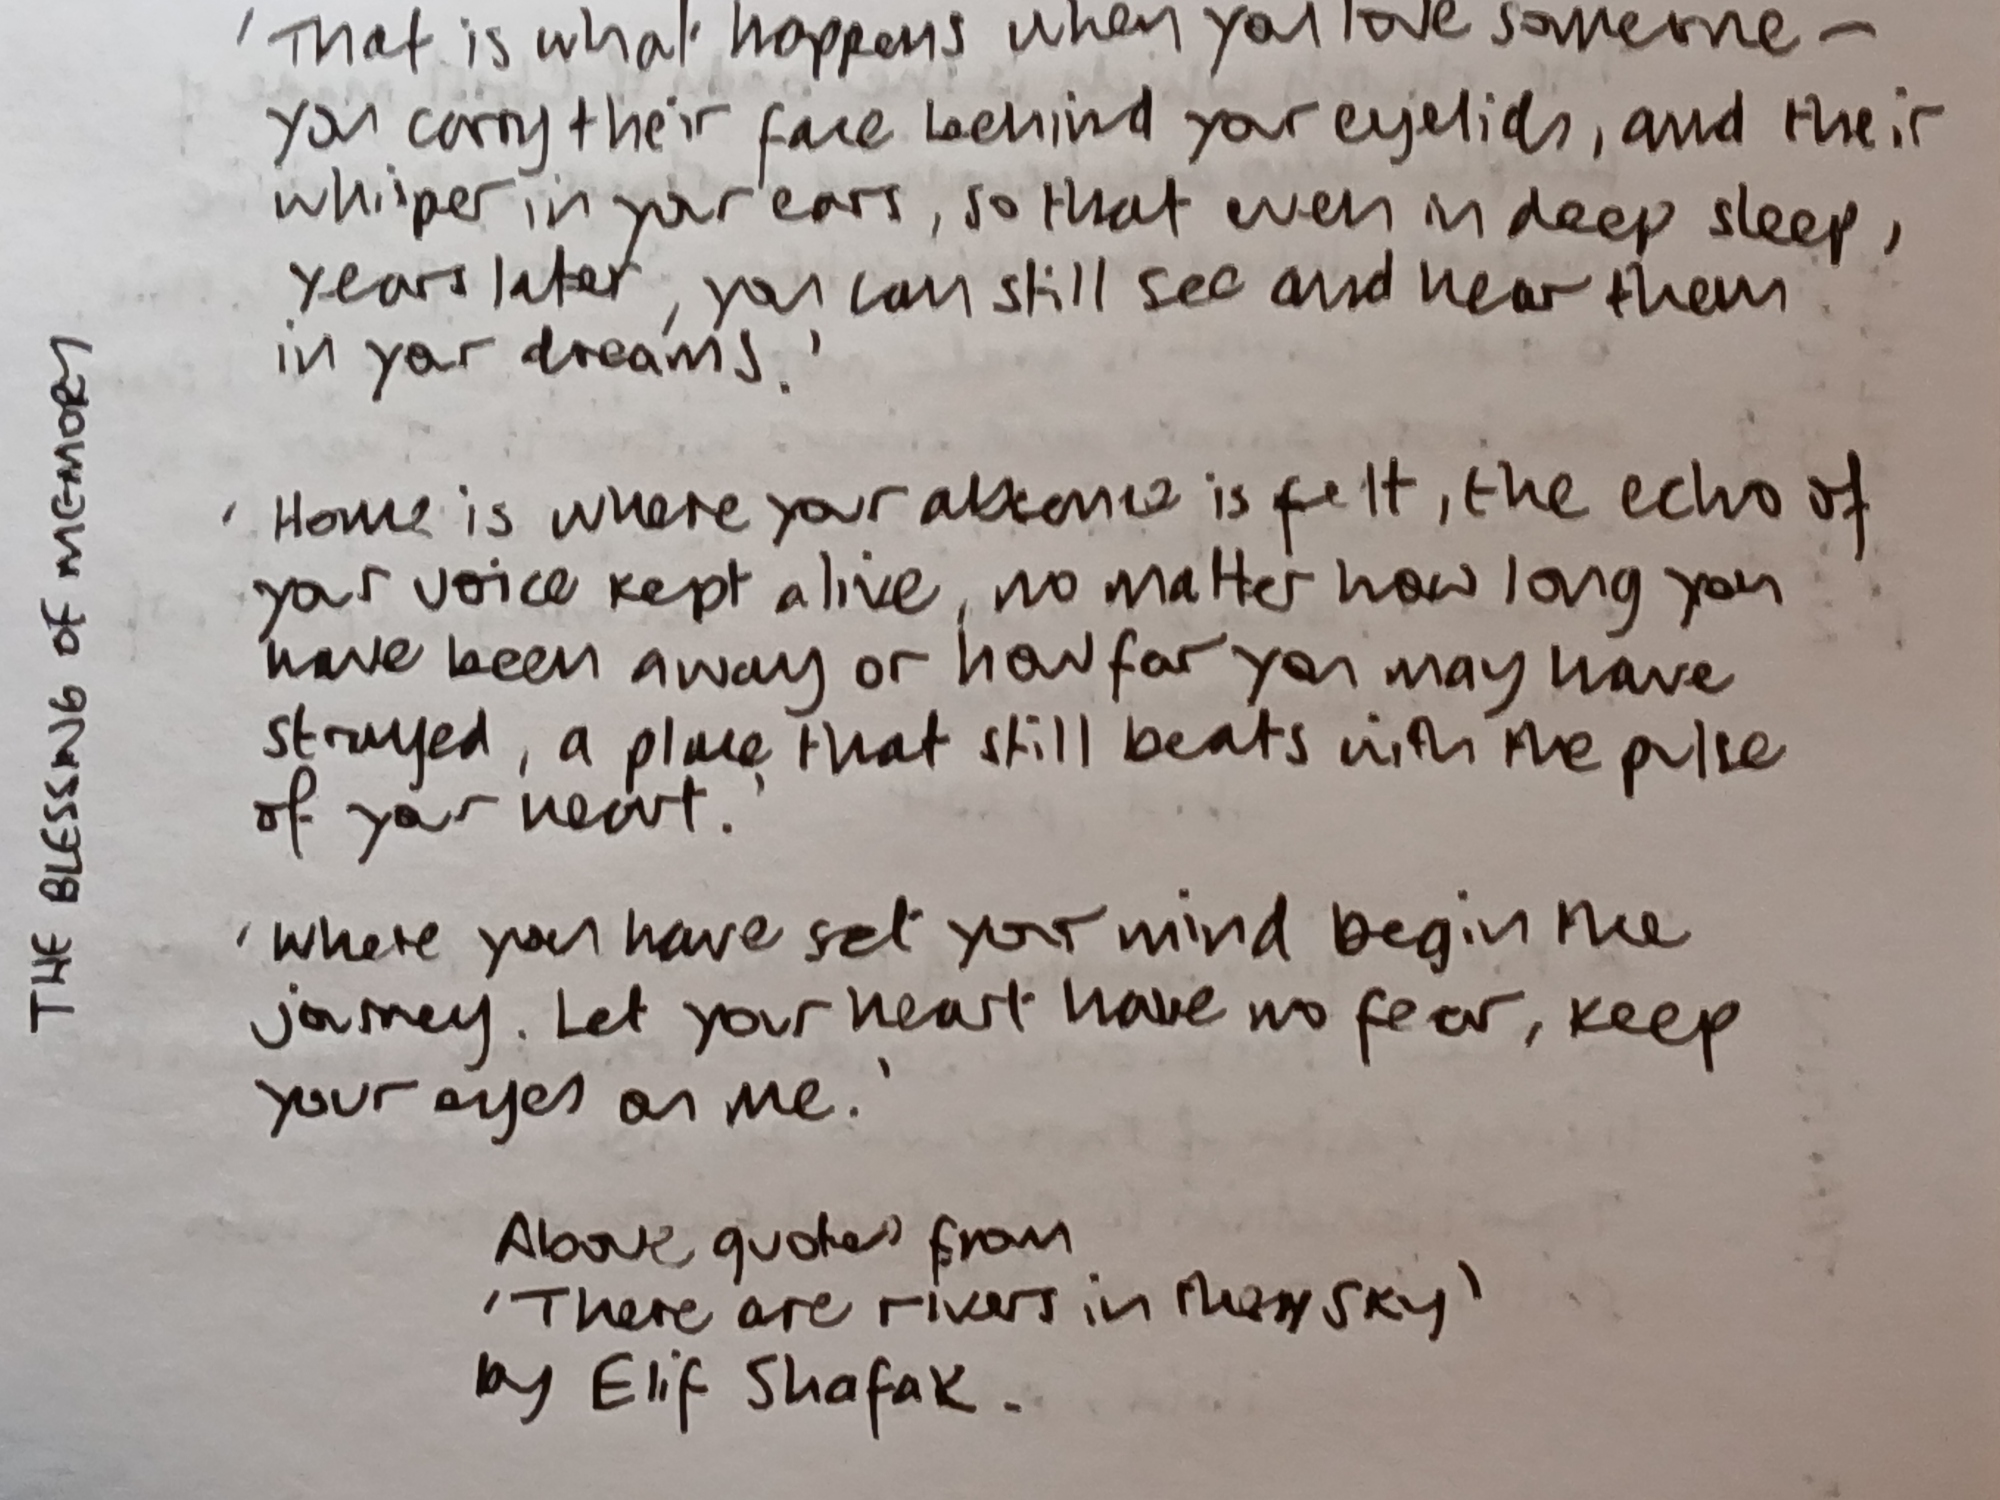 'That is what happens when you love someone –
you carry their face behind your eyelids, and their
whisper in your ears, so that even in deep sleep,
years later, you can still see and hear them
in your dreams.'
'Home is where your absence is felt, the echo of
your voice kept alive, no matter how long you
have been away or how far you may have
strayed, a place that still beats with the pulse
of your heart.'
'Where you have set your mind begin the
journey. Let your heart have no fear, keep
your eyes on me.'
Above quotes from
'There are rivers in the sky'
by Elif Shafak.
THE BLESSING OF MEMORY